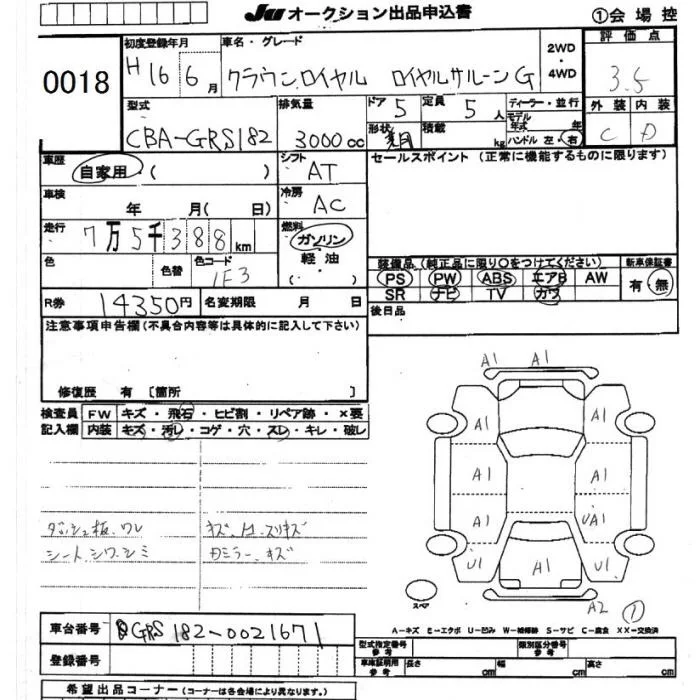 JU オークション出品申込書
①会場控
0018
初度登録年月
H 16 6月
車名・グレード
クラウンロイヤル ロイヤルサルーンG
2WD
・
4WD
評価点
3.5
型式
CBA-GRS182
排気量
3000cc
ドア 5
定員 5人
ディーラー・並行
モデル年式 年
形状
積載 kg
ハンドル 左・右
外装 内装
C D
車歴
自家用・( )
シフト
AT
セールスポイント (正常に機能するものに限ります)
車検
年 月( 日)
冷房
AC
走行
7万5千388km
燃料
ガソリン
軽油
( )
色
色替
色コード
1F3
装備品(純正品に限り○をつけてください)
新車保証書
PS PW ABS エアB AW
有・無
SR ナビ TV カワ
R券 14350円
名変期限 月 日
後日品
注意事項申告欄(不具合内容等は具体的に記入して下さい)
修復歴 有 〔箇所 〕
検査員 FW キズ・飛石・ヒビ割・リペア跡・×要
記入欄 内装 キズ・汚レ・コゲ・穴・スレ・キレ・破レ
ダッシュ板、ワレ
シートシワ、シミ
キズ
ミラー、キズ
A1 A1
A1 A1
A1 A1
A1 UA1
U1 A1 U1
A2 ①
スペア
A-キズ E-エクボ U-凹み W-補修跡 S-サビ C-腐食 XX-交換済
車台番号 GRS182-0021671
登録番号
型式指定番号 参考
類別区分番号 参考
車庫証明用 参考 長さ cm 幅 cm 高さ cm
希望出品コーナー (コーナーは各会場により異なります。)